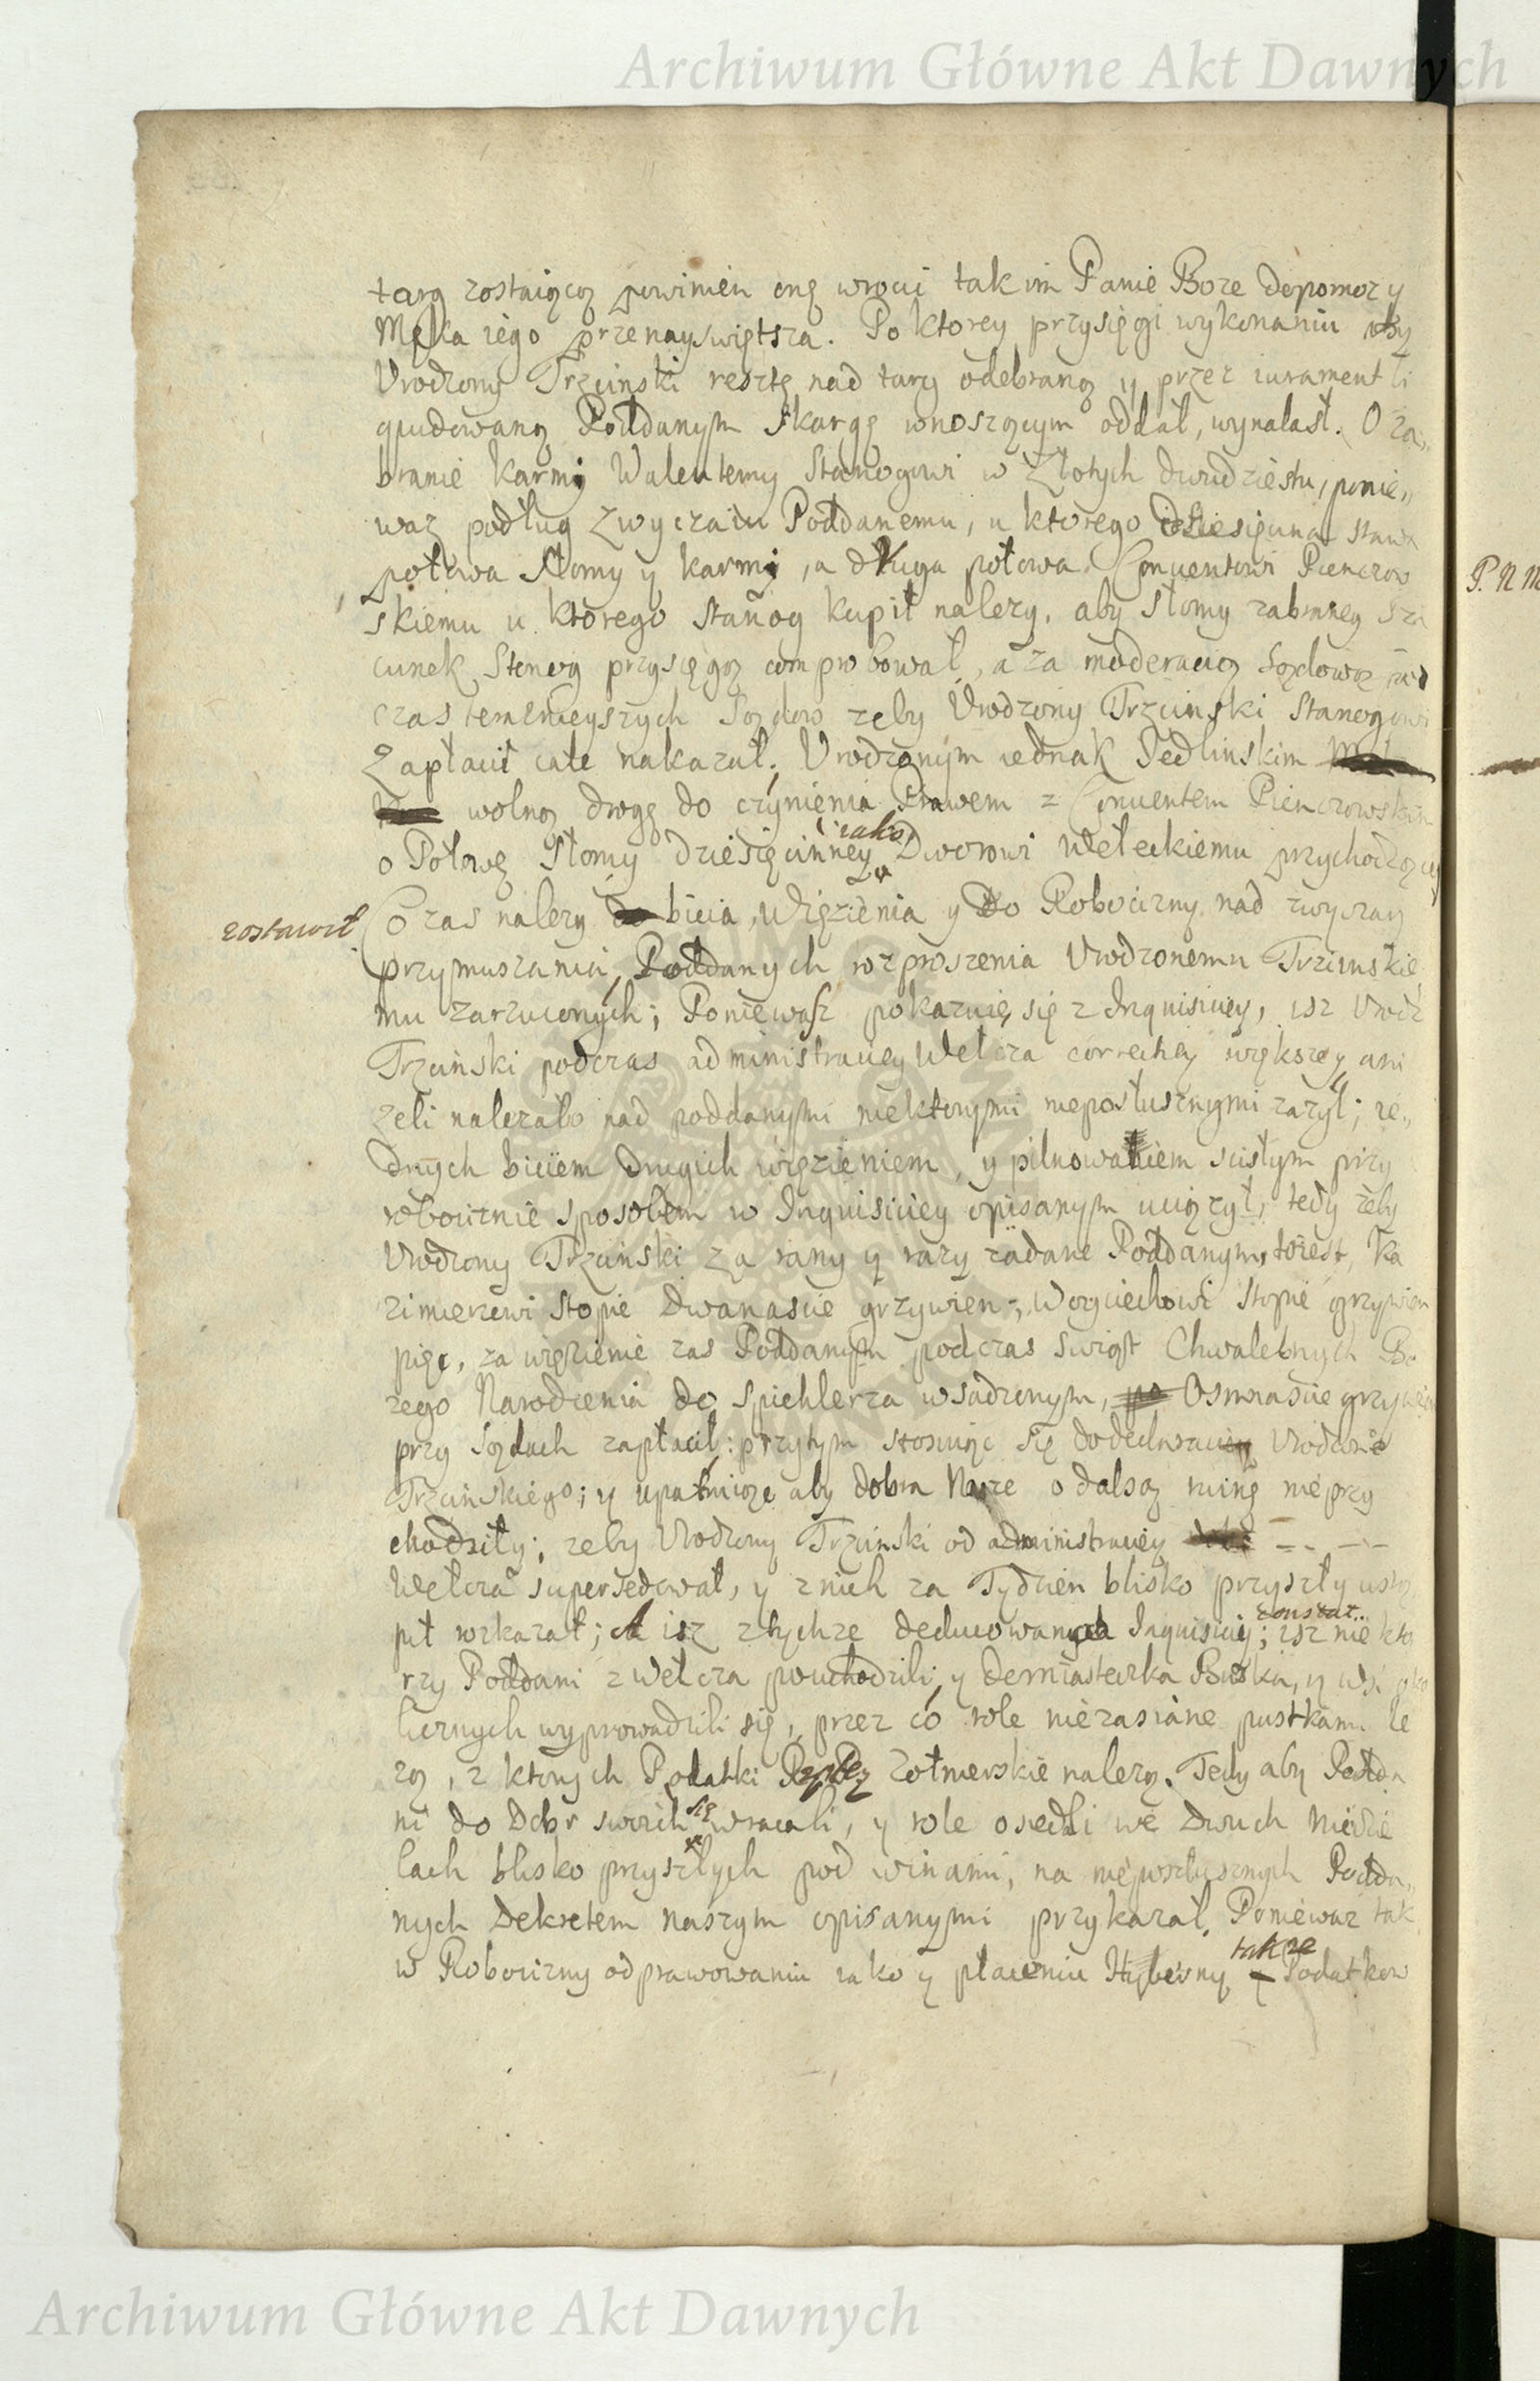 Archiwum Główne Akt Dawnych
targ zostaiącą powinien onę wrocić tak im Panie Boze dopomoz y
Męka iego przenayswiętsza. Po ktorey przysięgi wykonaniu aby
Vrodzony Trzcinski resztę nad targ odebraną y przez iurament li
quidowaną Poddanym skargę wnoszącym oddał, wynalasł. O za„
branie karmi Walentemu Stanogowi w Złotych dwudziestu, ponie„
waz podług zwyczaiu Poddanemu, u ktorego dziesięcina stawa
połowa słomy y karmi, a druga połowa Conuentowi Pinczow
skiemu u ktorego Stanog kupił nalezy, aby słomy zabraney sza
cunek Stanog przysięgą comprobował, a za moderacią Sądową
czas teraznieyszych Sądow zeby Vrodzony Trzcinski Stanogowi
Zapłacił cale nakazał. Vrodzonym iednak Jedlinskim
wolną drogę do czynienia Prawem z Conuentem Pinczowskim
o Połowę słomy dziesięcinney iako Dworowi Wełeckiemu przychodzącey
zostawił
Co zas nalezy bicia, więzienia y do Robocizny nad zwyczay
przymuszania, Poddanych rozproszenia Vrodzonemu Trzcinskie
mu zarzuconych; Poniewasz pokazuie się z Inquisiciey, isz Vrodz
Trzcinski podczas administraciey Wełcza correctiey większey ani
zeli nalezało nad poddanymi niektorymi nieposłusznymi zazył; ie„
dnych biciem drugich więzieniem, y pilnowaniem scisłym przy
robociznie sposobem w Inquisiciey opisanym uciązył, tedy zeby
Vrodzony Trzcinski za rany y razy zadane Poddanym, toiest, Ka
zimierzewi Stopie dwanascie grzywien, Woyciechowi Stopie grzywien
pięc, za więzienie zas Poddanym podczas swiąt Chwalebnych Bo
zego Narodzenia do Spichlerza wsadzonym, Osmnascie grzywien
przy Sądach zapłacił: przytym stosuiąc się do declaraciey Vrodzone
Trzcinskiego; y upatruiąc aby dobra Nasze o dalszą ruinę nie przy
chodziły; zeby Vrodzony Trzcinski od administraciey
Wełcza supersedował, y z nich za Tydzien blisko przyszły ustą
pił wskazał; A isz z tychze deducowanych Inquisiciy constat; isz niekto
rzy Poddani z Wełcza pouchodzili y do miasteczka Buska, y wsi oko
licznych wyprowadzili się, przez co role niezasiane pustkami le
zą, z ktorych Podatki Rzptey zołnierskie nalezą. Tedy aby Podda
ni do Dobr swoich się wracali, y role osiedli we dwuch Niedzie
lach blisko przyszłych pod winami, na nieposłusznych Podda„
nych Dekretem naszym opisanymi przykazał. Poniewaz tak
w Robocizny odprawowaniu iako y płaceniu Hyberny także Podatkow
P. N M
Archiwum Główne Akt Dawnych